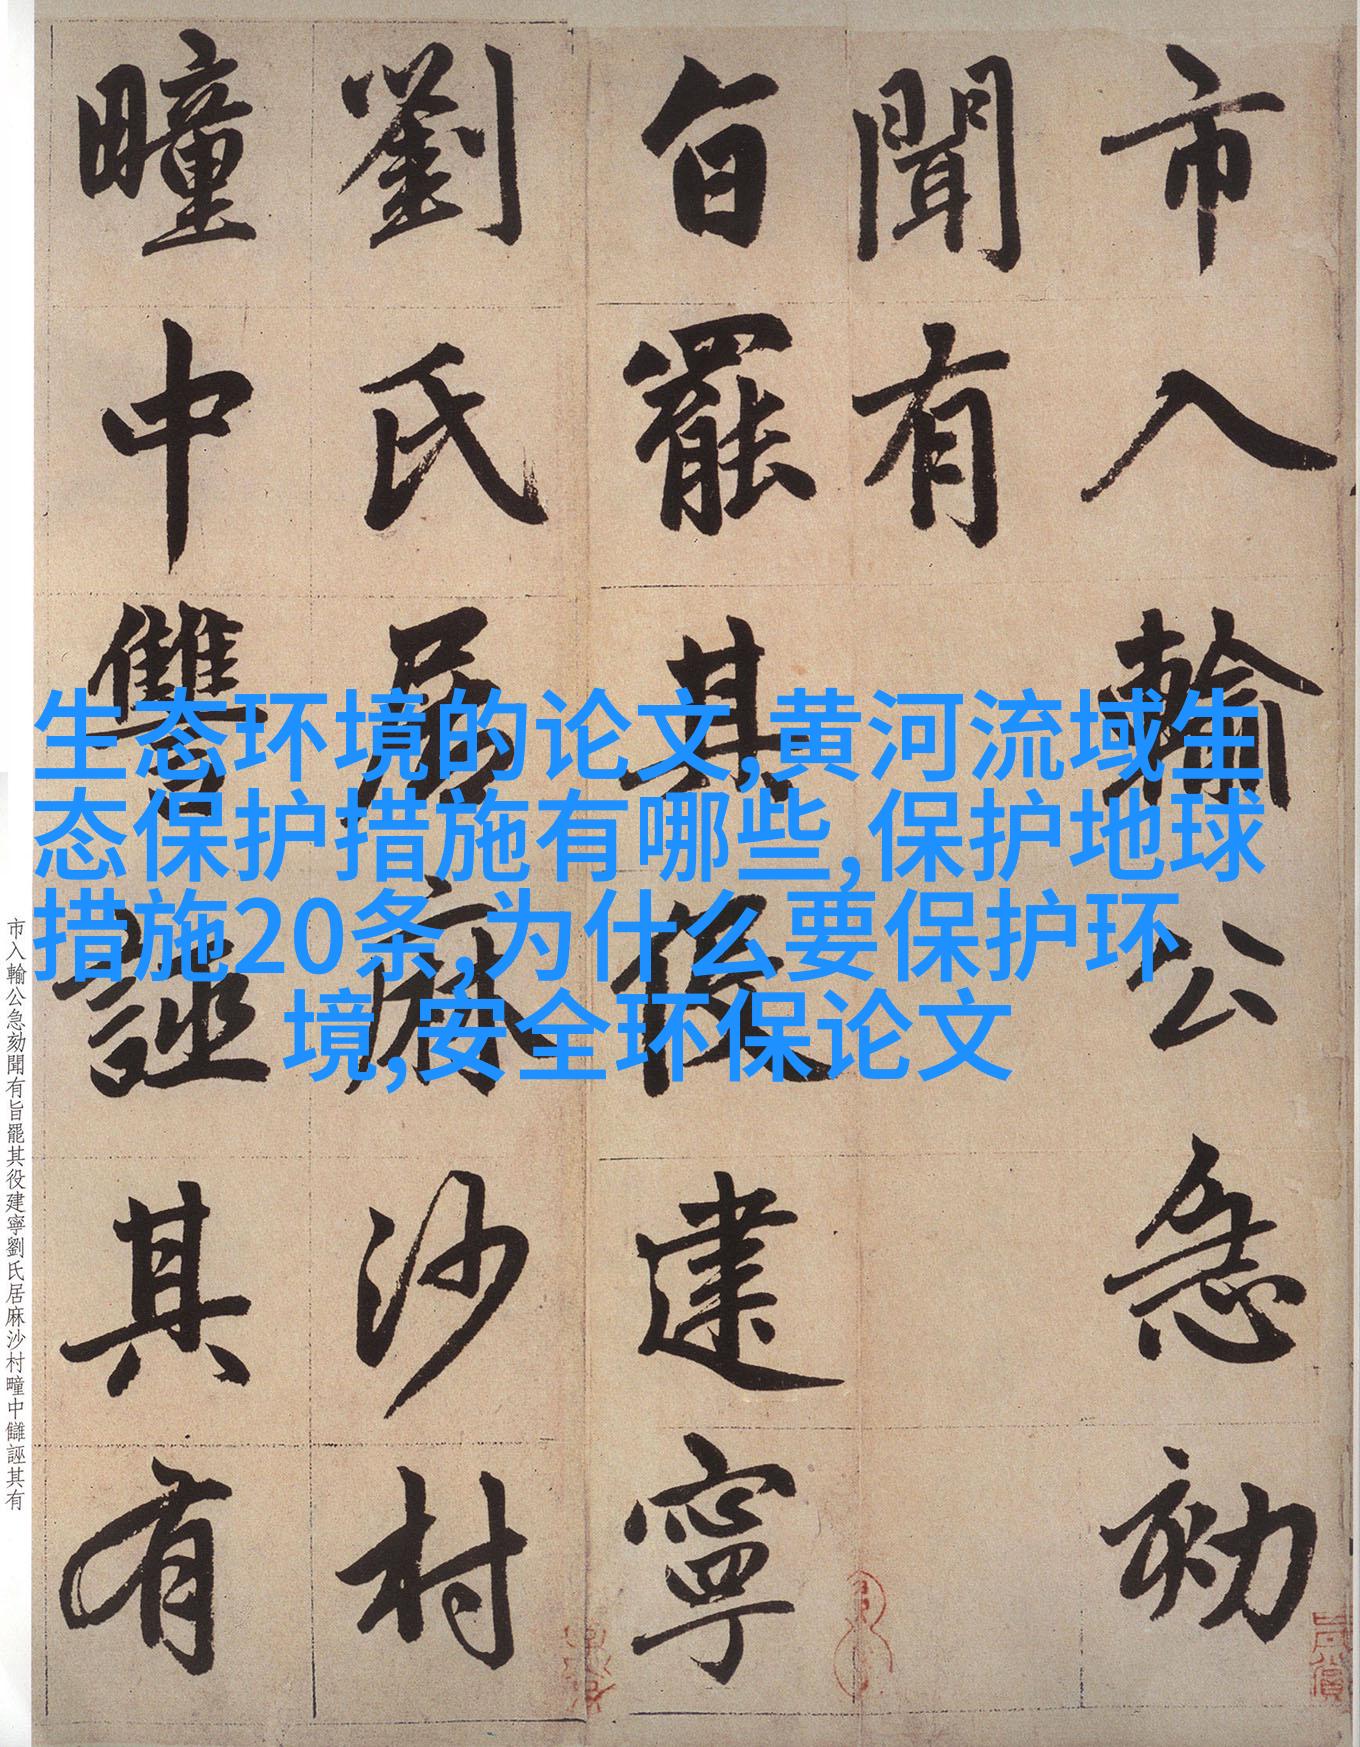 市入輸公急劾
聞有
旨罷其役建寧
劉氏居麻沙村
疃中讎誣其有
生态环境的论文,黄河流域生
态保护措施有哪些,保护地球
措施20条,为什么要保护环
境,安全环保论文
市入輸公急劾聞有旨罷其役建寧劉氏居麻沙村疃中讎誣其有